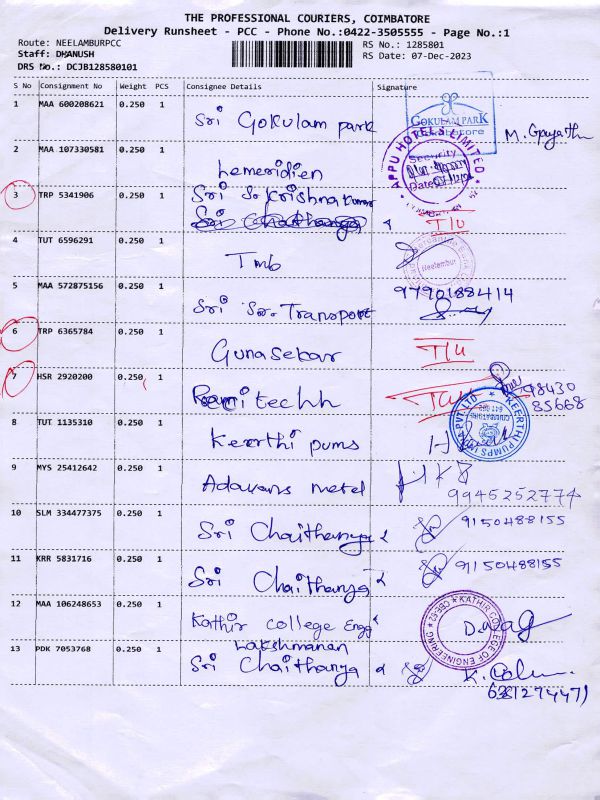 THE PROFESSIONAL COURIERS, COIMBATORE
Delivery Runsheet - PCC - Phone No.:0422-3505555 - Page No.:1
Route: NEELAMBURPCC RS No.: 1285801
Staff: DHANUSH RS Date: 07-Dec-2023
DRS No.: DCJB128580101
S No Consignment No Weight PCS Consignee Details Signature
1 MAA 600208621 0.250 1 Sri Gokulam park GOKULAM PARK
2 MAA 107330581 0.250 1 Lemeridien APPU HOTELS LIMITED Security
3 TRP 5341906 0.250 1 Sri S. Krishna kumar T/U
4 TUT 6596291 0.250 1 Tmb Neelambur
5 MAA 572875156 0.250 1 Sri Sr. Transport 9790188414
6 TRP 6365784 0.250 1 Gunasekar T/U
7 HSR 2920200 0.250 1 techh 98430
85668
8 TUT 1135310 0.250 1 Keerthi pums KEERTHI PUMPS
9 MYS 25412642 0.250 1 metal 9945252774
10 SLM 334477375 0.250 1 Sri Chaithanya 9150488155
11 KRR 5831716 0.250 1 Sri Chaithanya 9150488155
12 MAA 106248653 0.250 1 Kathir college Engg KATHIR COLLEGE OF ENGINEERING
13 PDK 7053768 0.250 1 Lakshmanan
Sri Chaithanya